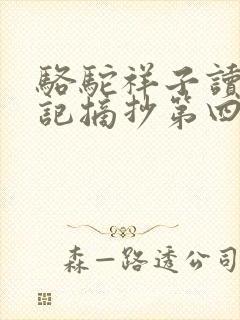 駱駝祥子讀
記摘抄第四
森一路透公司